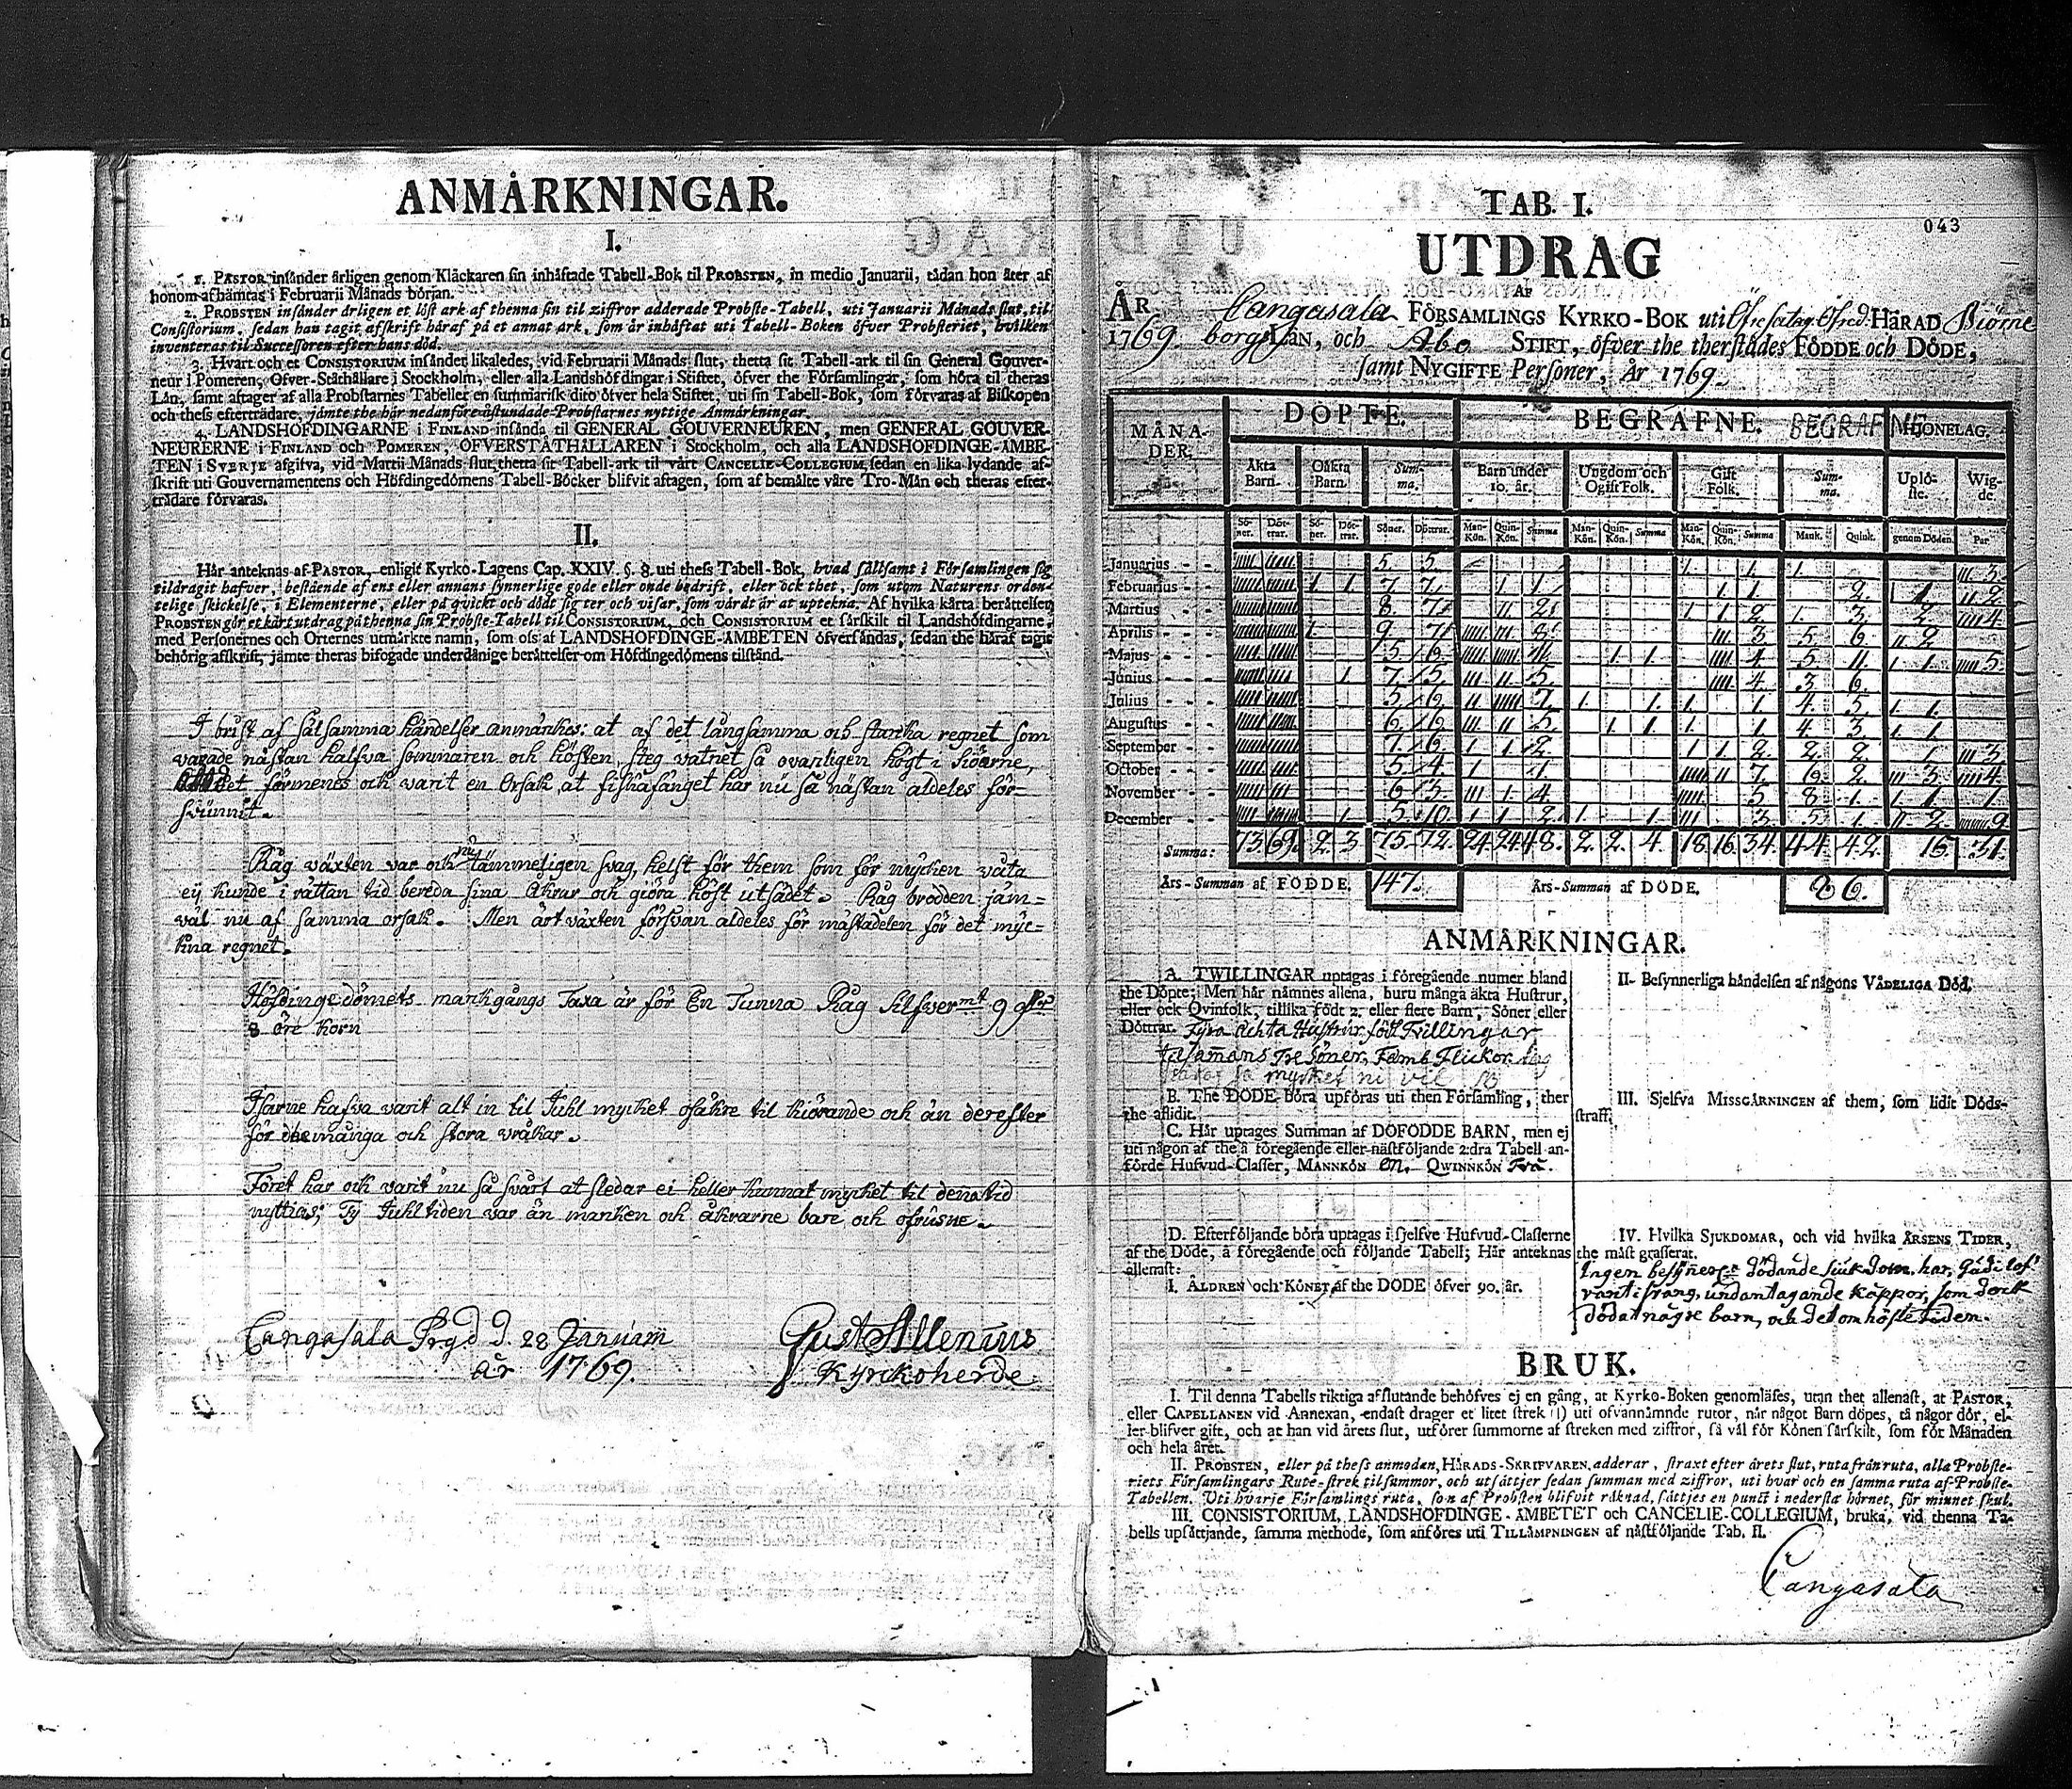 ANMÄRKNINGAR.
I.
1. PASTOR insänder årligen genom Kläckaren sin inhäftade Tabell-Bok til PROBSTEN, in medio Januarii, tådan hon åter af
honom afhämtas i Februarii Månads början.
2. PROBSTEN insänder årligen et löst ark af thenna sin til ziffror adderade Probste-Tabell, uti Januarii Månads slut, til
Consistorium, sedan han tagit afskrift häraf på et annat ark, som är inhäftat uti Tabell-Boken öfver Probsteriet, hvilken
inventeras til Successoren efter hans död.
3. Hvart och et CONSISTORIUM insänder likaledes, vid Februarii Månads slut, thetta sit Tabell-ark til sin General Gouver-
neur i Pomeren, Öfver-Ståthållare i Stockholm, eller alla Landshöfdingar i Stiftet, öfver the Församlingar, som höra til theras
Län, samt aftager af alla Probstarnes Tabeller en summarisk dito öfver hela Stiftet, uti sin Tabell-Bok, som förvaras af Biskopen
och thess efterträdare, jämte the här nedanföre åstundade Probstarnes nyttige Anmärkningar.
4. LANDSHÖFDINGARNE i FINLAND insända til GENERAL GOUVERNEUREN, men GENERAL GOUVER-
NEURERNE i FINLAND och POMEREN, ÖFVERSTÅTHÅLLAREN i Stockholm, och alla LANDSHÖFDINGE-ÄMBE-
TEN i SVERJE afgifva, vid Martii Månads slut, thetta sit Tabell-ark til vårt CANCELIE-COLLEGIUM, sedan en lika lydande af-
skrift uti Gouvernamentens och Höfdingedömens Tabell-Böcker blifvit aftagen, som af bemälte våre Tro-Män och theras efter-
trädare förvaras.
II.
Här anteknas af PASTOR, enligit Kyrko-Lagens Cap. XXIV. §. 8. uti thess Tabell-Bok, hvad sällsamt i Församlingen sig
tildragit hafver, bestående af ens eller annans synnerlige gode eller onde bedrift, eller ock thet, som utom Naturens orden-
telige skickelse, i Elementerne, eller på quickt och dödt sig ter och visar, som värdt är at uptekna. Af hvilka kårta berättelser
PROBSTEN gör et kårt utdrag på thenna sin Probste-Tabell til CONSISTORIUM, och CONSISTORIUM et särskilt til Landshöfdingarne,
med Personernes och Orternes utmärkte namn, som oss af LANDSHÖFDINGE-ÄMBETEN öfversändas, sedan the häraf tagit
behörig afskrift, jämte theras bifogade underdånige berättelser om Höfdingedömens tilstånd.
I brist af sälsamma händelser anmärkes: at af det långsamma och starka regnet som
varade nästan halfva sommaren och hösten, steg vatnet så ovanligen högt i siöarne,
det förmenes och varit en orsak, at fiskafänget har nu så nästan aldeles för-
svunnit.
Råg växten var ock nu tämmeligen svag, helst för them som för mycken väta
ej kunde i rättan tid bereda sina åkrar och giöra höst utsädet. Råg brodden jäm-
väl nu af samma orsak. Men ärt växten försvan aldeles för mästadelen för det myc-
kna regnet.
Höfdingedömets markgångs Taxa är för En Tunna Råg Silfvermt 9
8 öre korn
Isarne hafva varit alt in til Juhl mycket osäkre til kiörande och än derefter
för de många och stora vråkar.
Föret har ock varit nu så svårt at sledar ei heller kunnat mycket til dena tid
nyttias; Ty Juhltiden var än marken och åkrarne bare och ofrusne.
Cangasala Prgd d. 28 Januarii
år 1769.
Gust Allenius
Kyrckoherde
043
TAB. I.
UTDRAG
AF
ÅR Cangasala FÖRSAMLINGS KYRKO-BOK uti HÄRAD Biörne
1769. borgs LÄN, och Åbo STIFT, öfver the therstädes FÖDDE och DÖDE,
samt NYGIFTE Personer, År 1769.
MÅNA-DER. DÖPTE. BEGRAFNE. BEGRAFNE HJONELAG.
Äkta Barn. Oäkta Barn. Summa. Barn under 10. år. Ungdom och Ogift Folk. Gift Folk. Summa. Uplöste. Wigde.
Söner. Döttrar. Söner. Döttrar. Söner. Döttrar. Mankön. Quinkön. Summa Mankön. Quinkön. Summa Mankön. Quinkön. Summa Mank. Quink. genom Döden. Par.
Januarius - - 5 5 1 1 1 3
Februarius - - 1 1 7 7 1 1 1 2 1 2
Martius - - 8 7 2 1 1 2 1 3 2 4
Aprilis - - 1 9 7 8 3 5 6 2
Majus - - 5 6 1 1 4 5 11 1 5
Junius - - 1 7 5 5 4 3 6
Julius - - 5 6 7 1 1 1 1 4 5 1 1
Augustus - - 6 6 5 1 1 1 1 4 3 1 1
September - - 7 6 1 1 2 1 1 2 2 2 1 3
October - - 5 4 1 1 7 6 2 3 4
November - - 6 5 1 4 5 8 1 1 1
December - - 1 5 10 1 1 2 1 1 3 5 1 2 9
Summa: 73 69 2 3 75 72 24 24 48 2 2 4 18 16 34 44 42 15 31
Års-Summan af FÖDDE. 147. Års-Summan af DÖDE. 86.
ANMÄRKNINGAR.
A. TWILLINGAR uptagas i föregående numer bland
the Döpte; Men här nämnes allena, huru många äkta Hustrur,
eller ock Qvinfolk, tillika födt 2. eller flere Barn, Söner eller
Döttrar. Fyra ächta Hustrur födt Tvillingar
tilsamans Tre Söner, Fämb Flickor
B. The DÖDE böra upföras uti then Församling, ther
the aflidit.
C. Här uptages Summan af DÖFÖDDE BARN, men ej
uti någon af the å föregående eller nästföljande 2:dra Tabell an-
förde Hufvud-Classer, MANNKÖN en. QWINNKÖN Två.
D. Efterföljande böra uptagas i sjelfve Hufvud-Classerne
af the Döde, å föregående och följande Tabell; Här anteknas
allenast:
I. ÅLDREN och KÖNET af the DÖDE öfver 90. år.
II. Besynnerliga händelsen af någons VÅDELIGA DÖD.
III. Sjelfva MISSGÄRNINGEN af them, som lidit Döds-
straff.
IV. Hvilka SJUKDOMAR, och vid hvilka ÅRSENS TIDER,
the mäst grasserat.
Ingen besynnerl. dödande siukdom har, Gudi lof
varit i svang, undantagande Koppor, som dock
dödat någre barn, och det om höste tiden.
BRUK.
I. Til denna Tabells riktiga afslutande behöfves ej en gång, at Kyrko-Boken genomläses, utan thet allenast, at PASTOR,
eller CAPELLANEN vid Annexan, endast drager et litet strek (|) uti ofvannämnde rutor, när något Barn döpes, tå någor dör, el-
ler blifver gift, och at han vid årets slut, utförer summorne af streken med ziffror, så väl för Könen särskilt, som för Månaden
och hela året.
II. PROBSTEN, eller på thess anmodan, HÄRADS-SKRIFVAREN, adderar, straxt efter årets slut, ruta från ruta, alla Probste-
riets Församlingars Rute-strek tilsummor, och utsättjer sedan summan med ziffror, uti hvar och en samma ruta af Probste-
Tabellen. Uti hvarje Församlings ruta, som af Probsten blifvit räknad, sättjes en punct i nedersta hörnet, för minnet skul.
III. CONSISTORIUM, LANDSHÖFDINGE-ÄMBETET och CANCELIE-COLLEGIUM, bruka, vid thenna Ta-
bells upsättjande, samma methode, som anföres uti TILLÄMPNINGEN af nästföljande Tab. II.
Cangasala